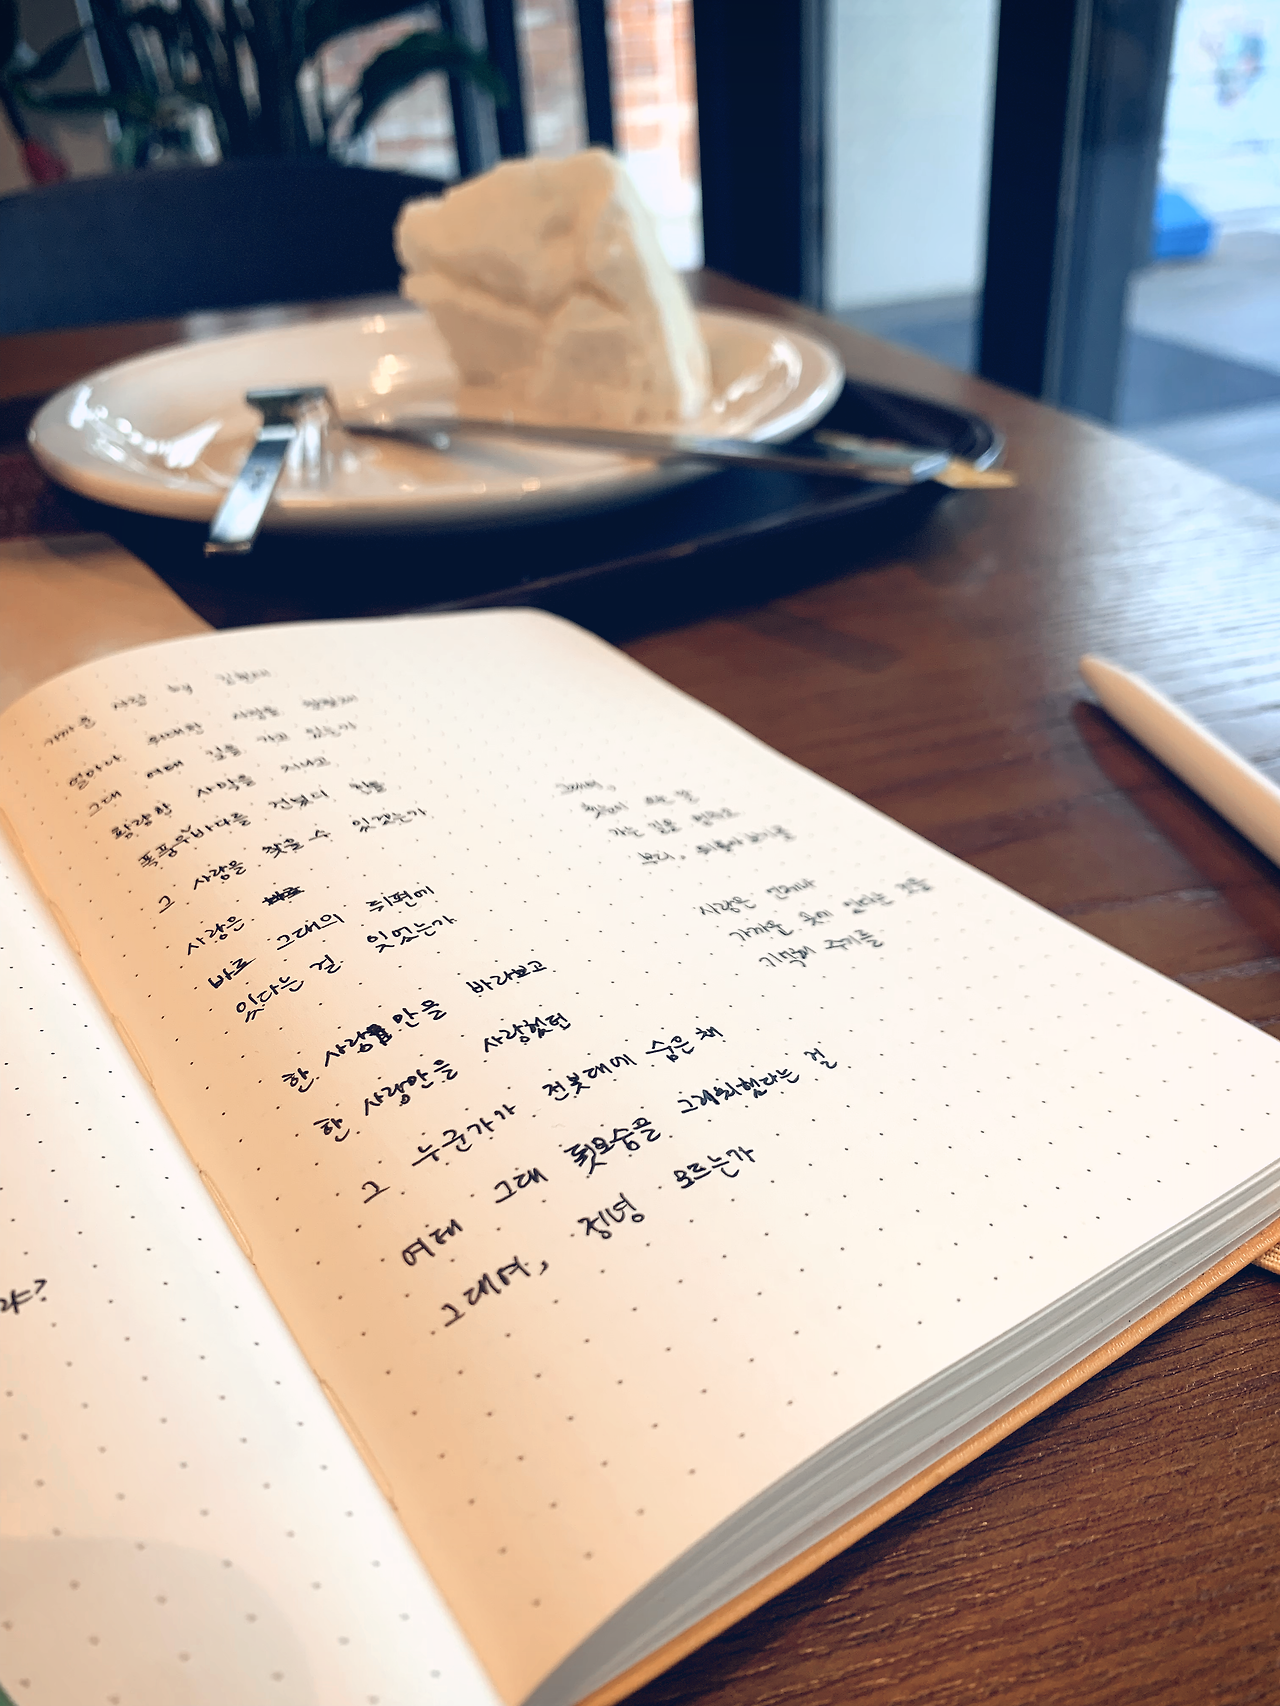 가까운 사랑 by
얼마나 위대한 사랑을
그대 여태 길을 가고 있는가
황량한 사막을 지나고
폭풍우바다를 건넜던 힌들
그 사랑을 찾을 수 있겠는가
사랑은
바로 그대의 뒤편에
있다는 걸 잊었는가
한 사람만을 바라보고
한 사람만을 사랑했던
그 누군가가 전봇대에 숨은 채
여태 그대 뒷모습을 그려워했다는 걸
그대여, 정녕 모르는가
그대여,
가는 길을 멈추고
부디, 뒤돌아보기를
사랑은 언제나
가까운 곳에 있다는 것을
기억해 주기를
라?